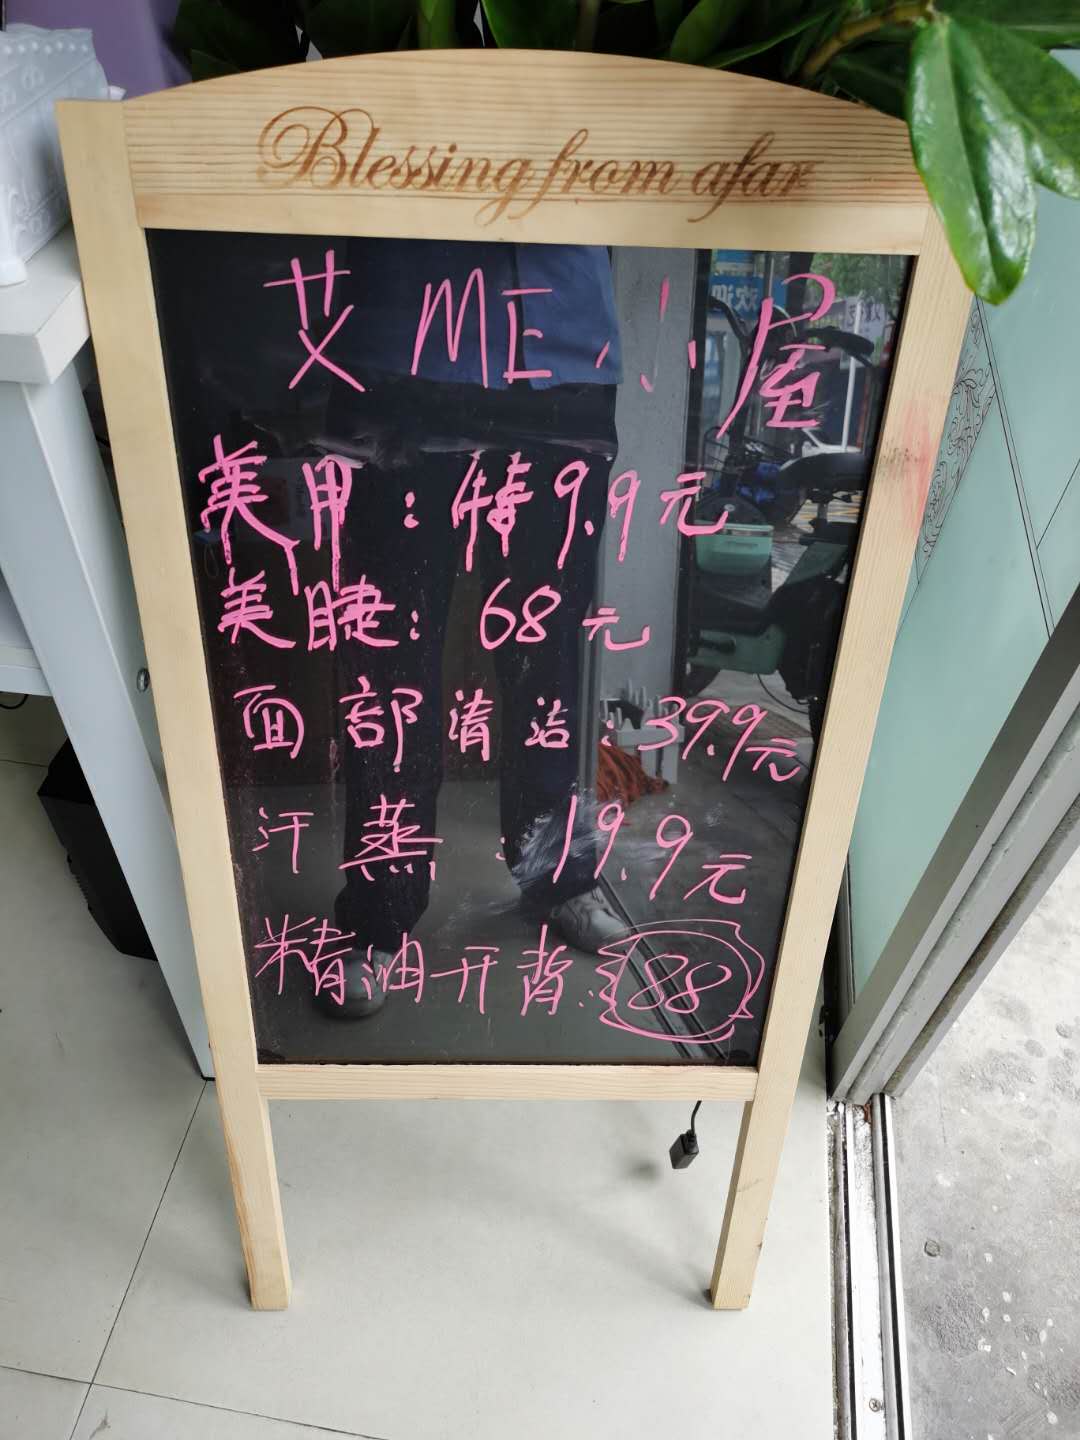 Blessing from afar
艾ME小屋
美甲:特9.9元
美睫:68元
面部清洁:39.9元
汗蒸:19.9元
精油开背:88
欢迎